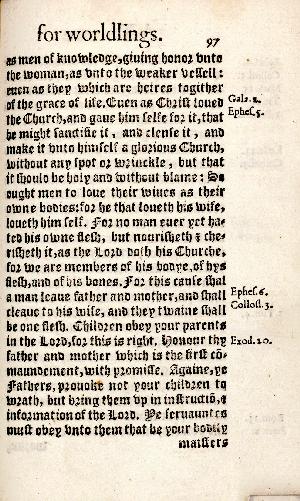 for worldlings.
97
as men of knowledge, giuing honor vnto
the woman, as vnto the weaker vessell:
euen as they which are heires togither
of the grace of life. Euen as Christ loued
Gala. 2.
the Church, and gaue him selfe for it, that
Ephes. 5.
he might sanctifie it, and clense it, and
make it vnto himself a glorious Church,
without any spot or wrinckle, but that
it should be holy and without blame: So
ought men to loue their wiues as their
owne bodies: for he that loueth his wife,
loueth him self. For no man euer yet ha-
ted his owne flesh, but nourisheth & che-
risheth it, as the Lord doth his Churche,
for we are members of his bodye, of hys
flesh, and of his bones. For this cause shal
a man leaue father and mother, and shall
Ephes. 6.
cleaue to his wife, and they twaine shall
Coloss. 3.
be one flesh. Children obey your parents
in the Lord, for this is right. Honour thy
Exod. 20.
father and mother which is the first cõ-
maundement, with promisse. Againe, ye
Fathers, prouoke not your children to
wrath, but bring them vp in instructiõ, &
information of the Lord. Ye seruauntes
must obey vnto them that be your bodily
maisters